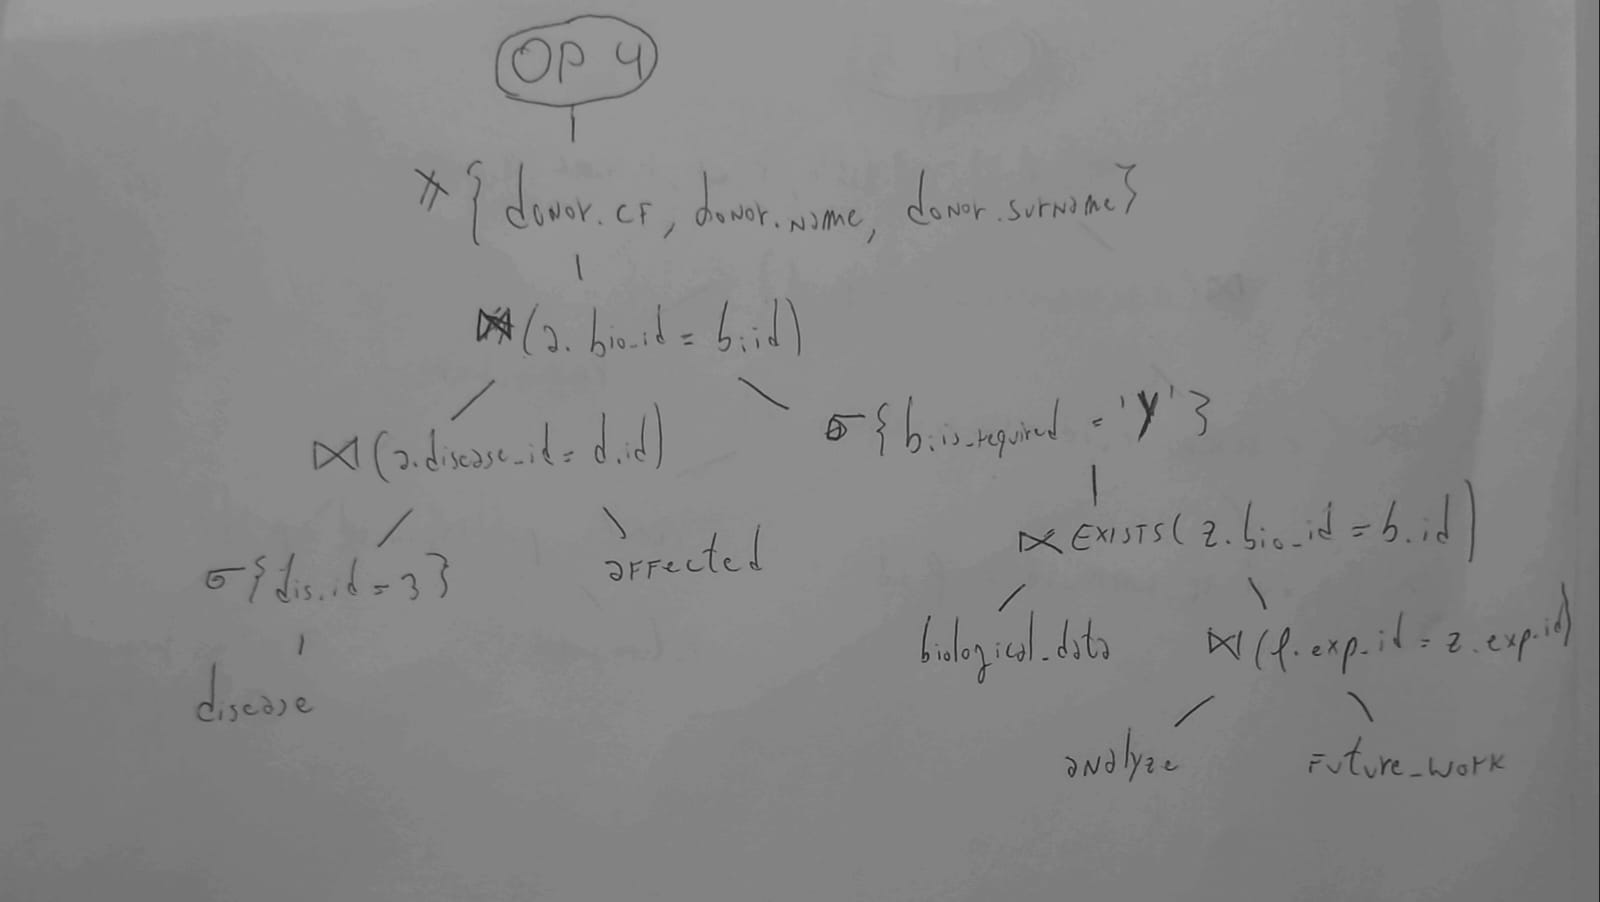 OP 4
π { donor.CF, donor.name, donor.surname}
⋈ (a. bio_id = b.id)
⋈ (a.disease_id = d.id)
σ { b.is_required = 'Y' }
σ {dis.id = 3}
affected
⋉ EXISTS( z.bio_id = b.id)
disease
biological_data
⋈ (f.exp_id = z.exp.id)
analyze
Future_work